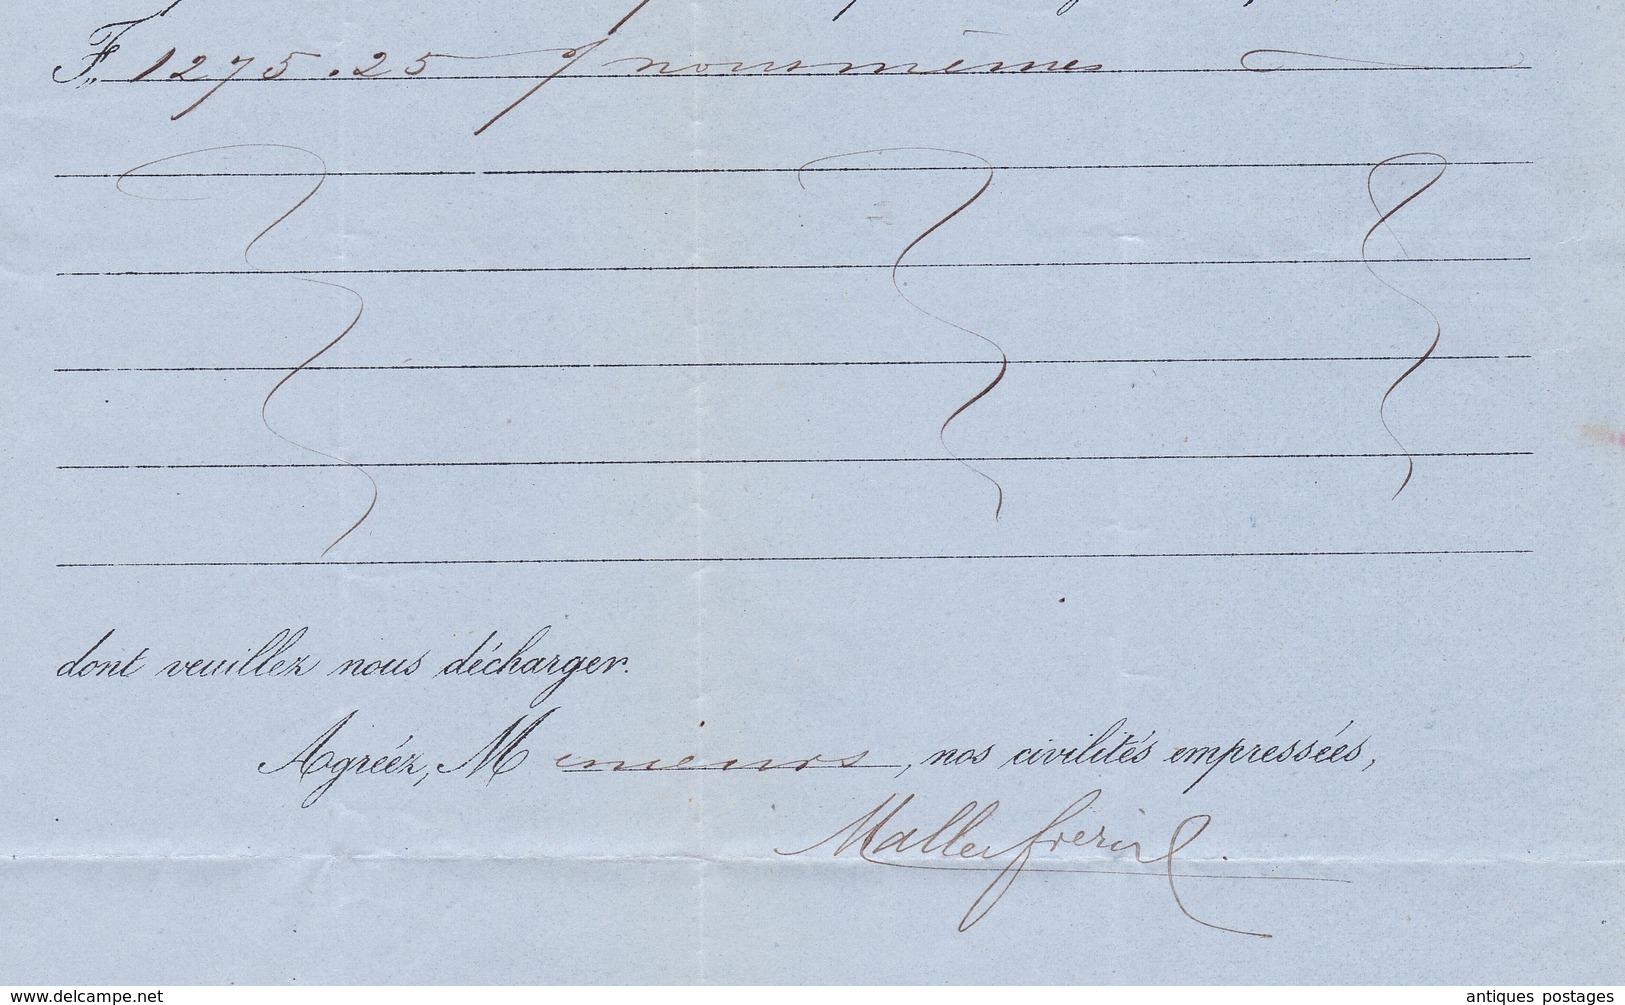 F. 1275.25 s/ nous mêmes
dont veuillez nous décharger.
Agréez, Messieurs, nos civilités empressées,
Mallet frères
www.delcampe.net
antiques postages